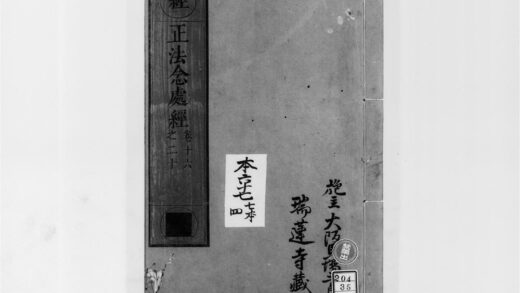 經
正法念處經
卷十六
之二十
本六十七
四
施主大阪
瑞蓮寺藏
禁帶出
204
35